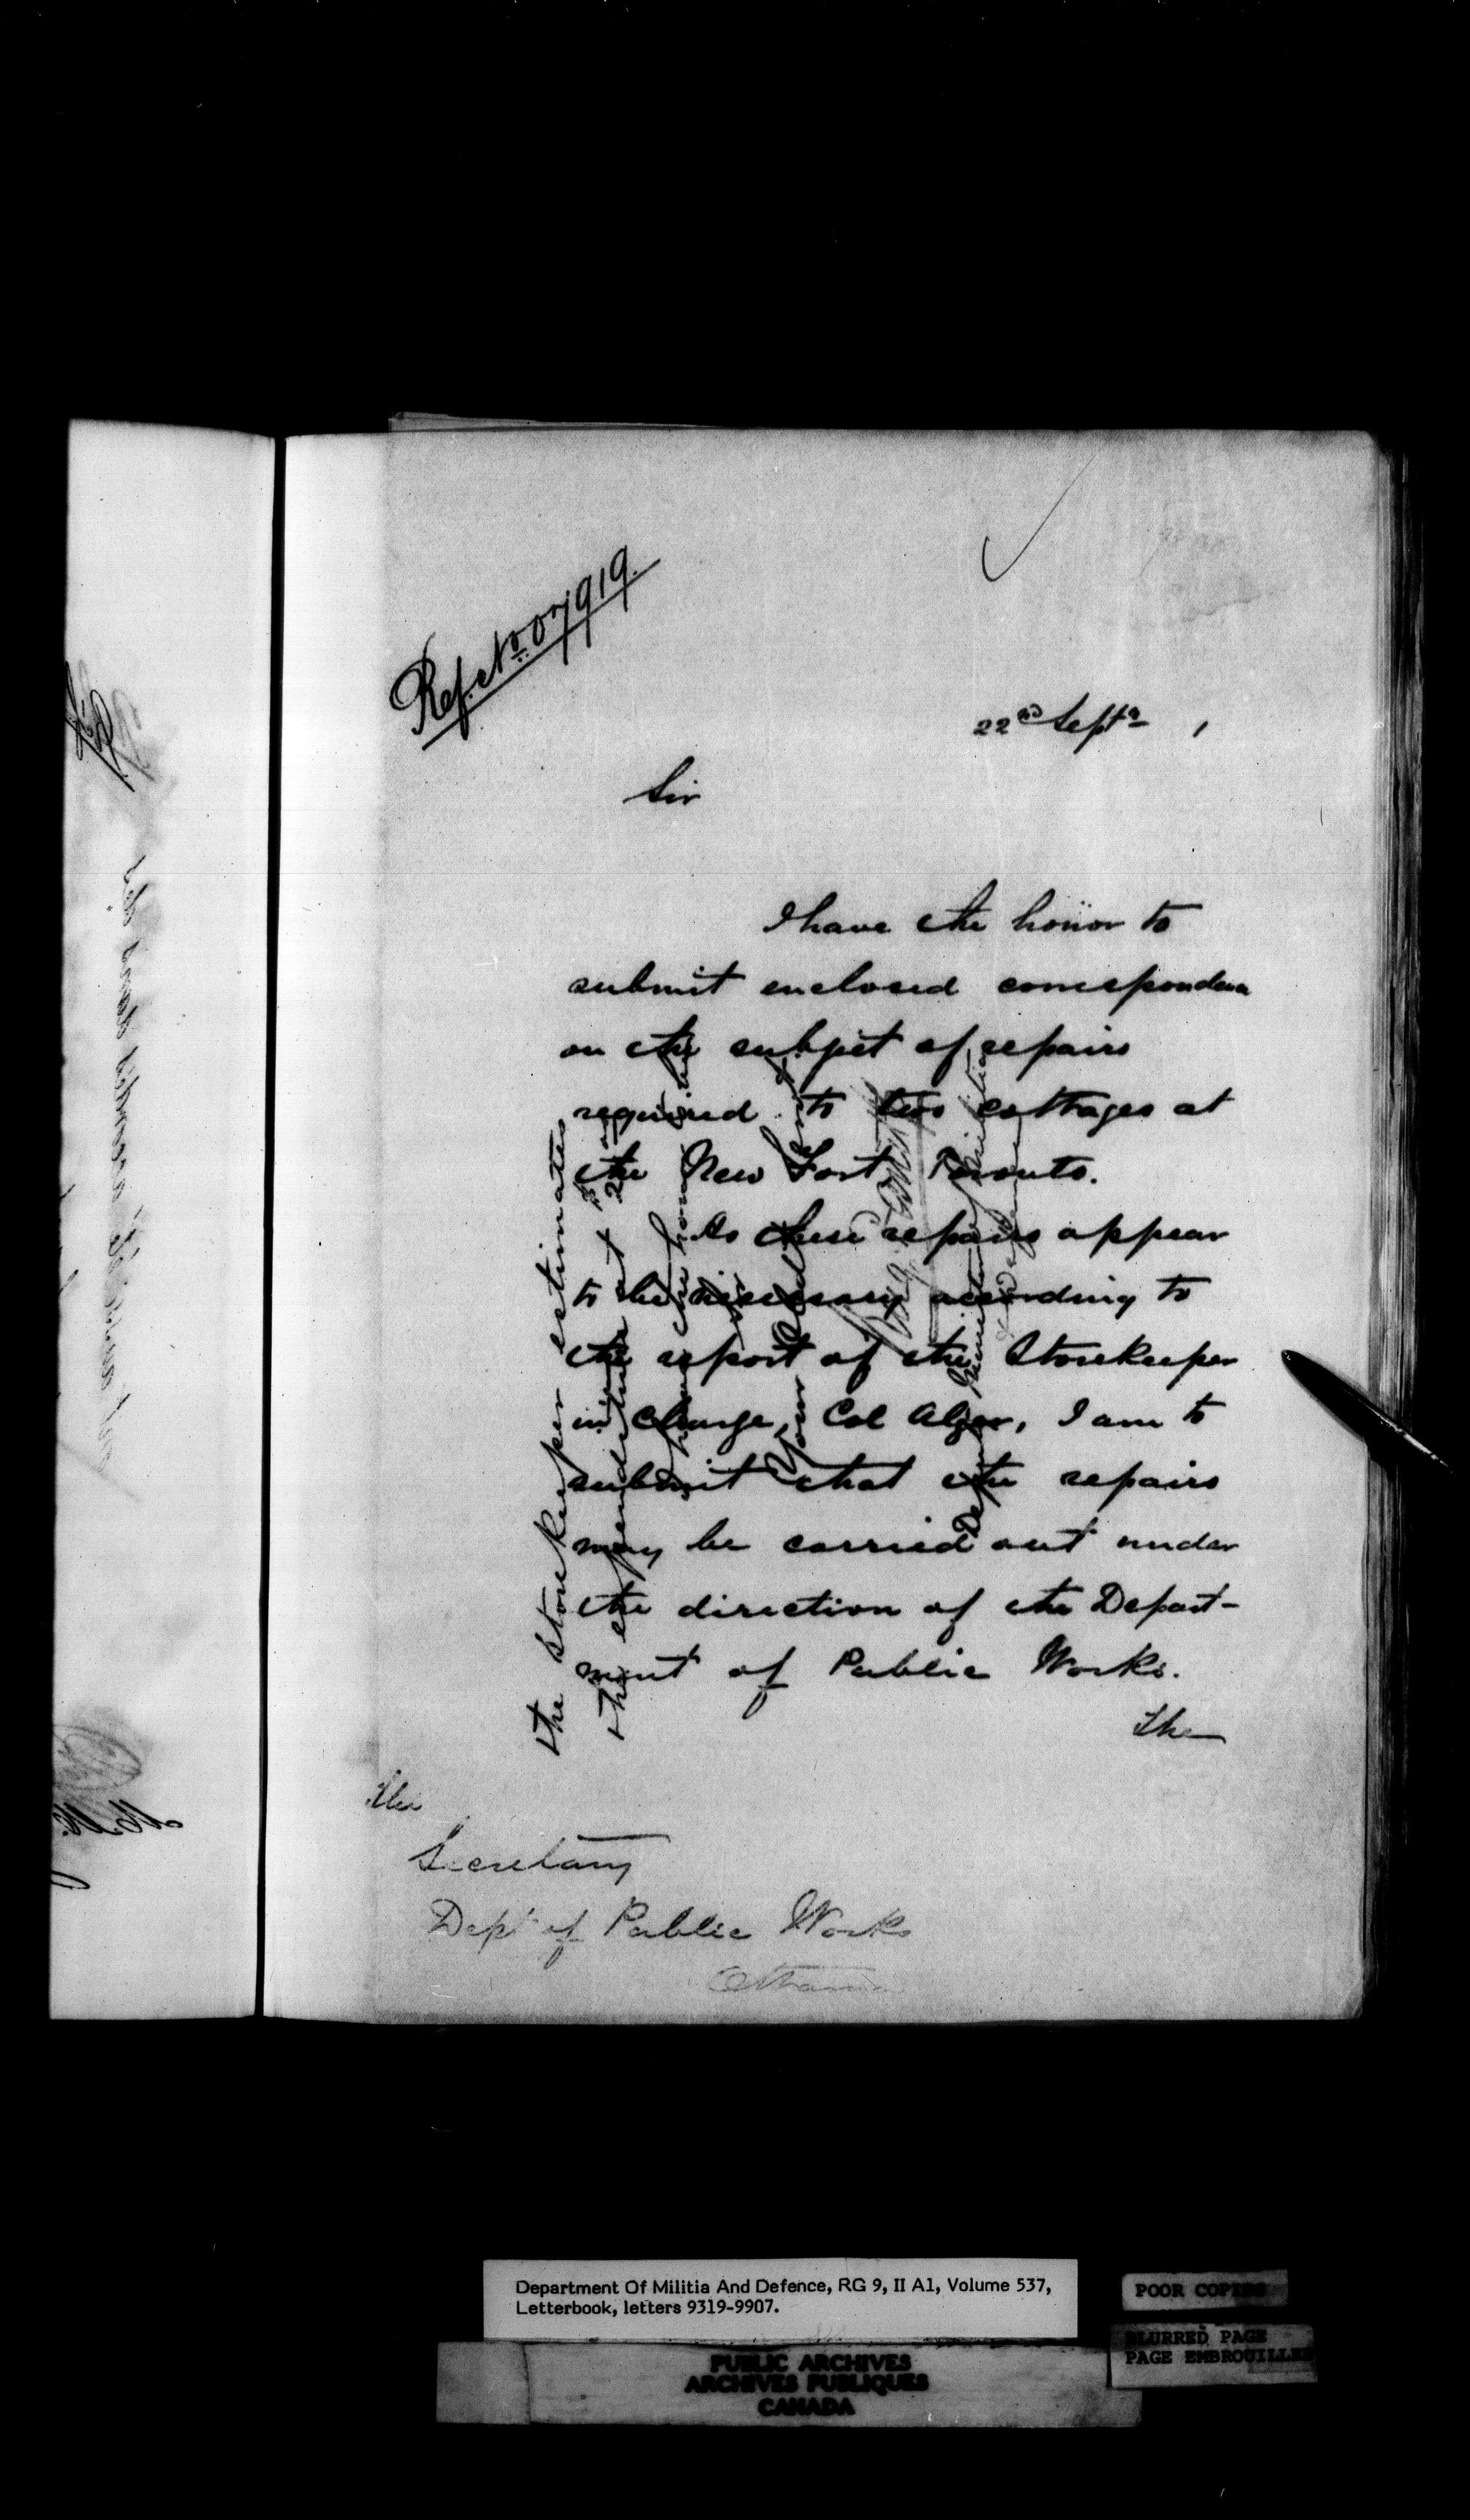 Ref. No 07919.
22nd Septr
Sir
I have the honor to
submit enclosed correspondence
on the subject of repairs
required to two cottages at
the New Fort Toronto.
As these repairs appear
to be necessary according to
the report of the Storekeeper
in charge, Col Alger, I am to
submit that the repairs
may be carried out under
the direction of the Depart-
ment of Public Works.
The
The
Secretary
Dept of Public Works
Ottawa
the Storekeeper estimates
the expenditure at
I have the honor
Sir
Your Obedt
Department, Militia
Department Of Militia And Defence, RG 9, II A1, Volume 537,
Letterbook, letters 9319-9907.
POOR COPIES
BLURRED PAGE
PAGE EMBROUILLEE
PUBLIC ARCHIVES
ARCHIVES PUBLIQUES
CANADA